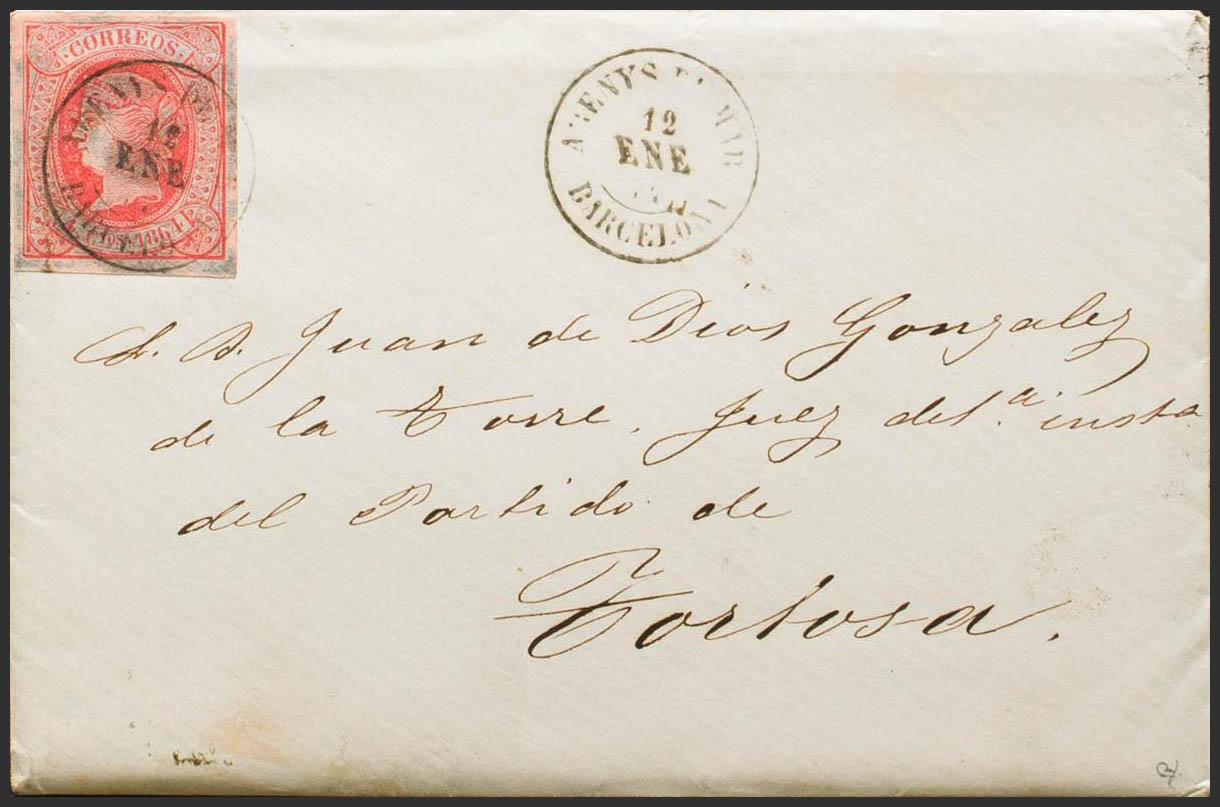 CORREOS
12
ENE
BARCELONA
ARENYS DE MAR
12
ENE
BARCELONA
S. D. Juan de Dios Gonzalez
de la Torre, Juez de 1.ª insta
del Partido de
Tortosa.